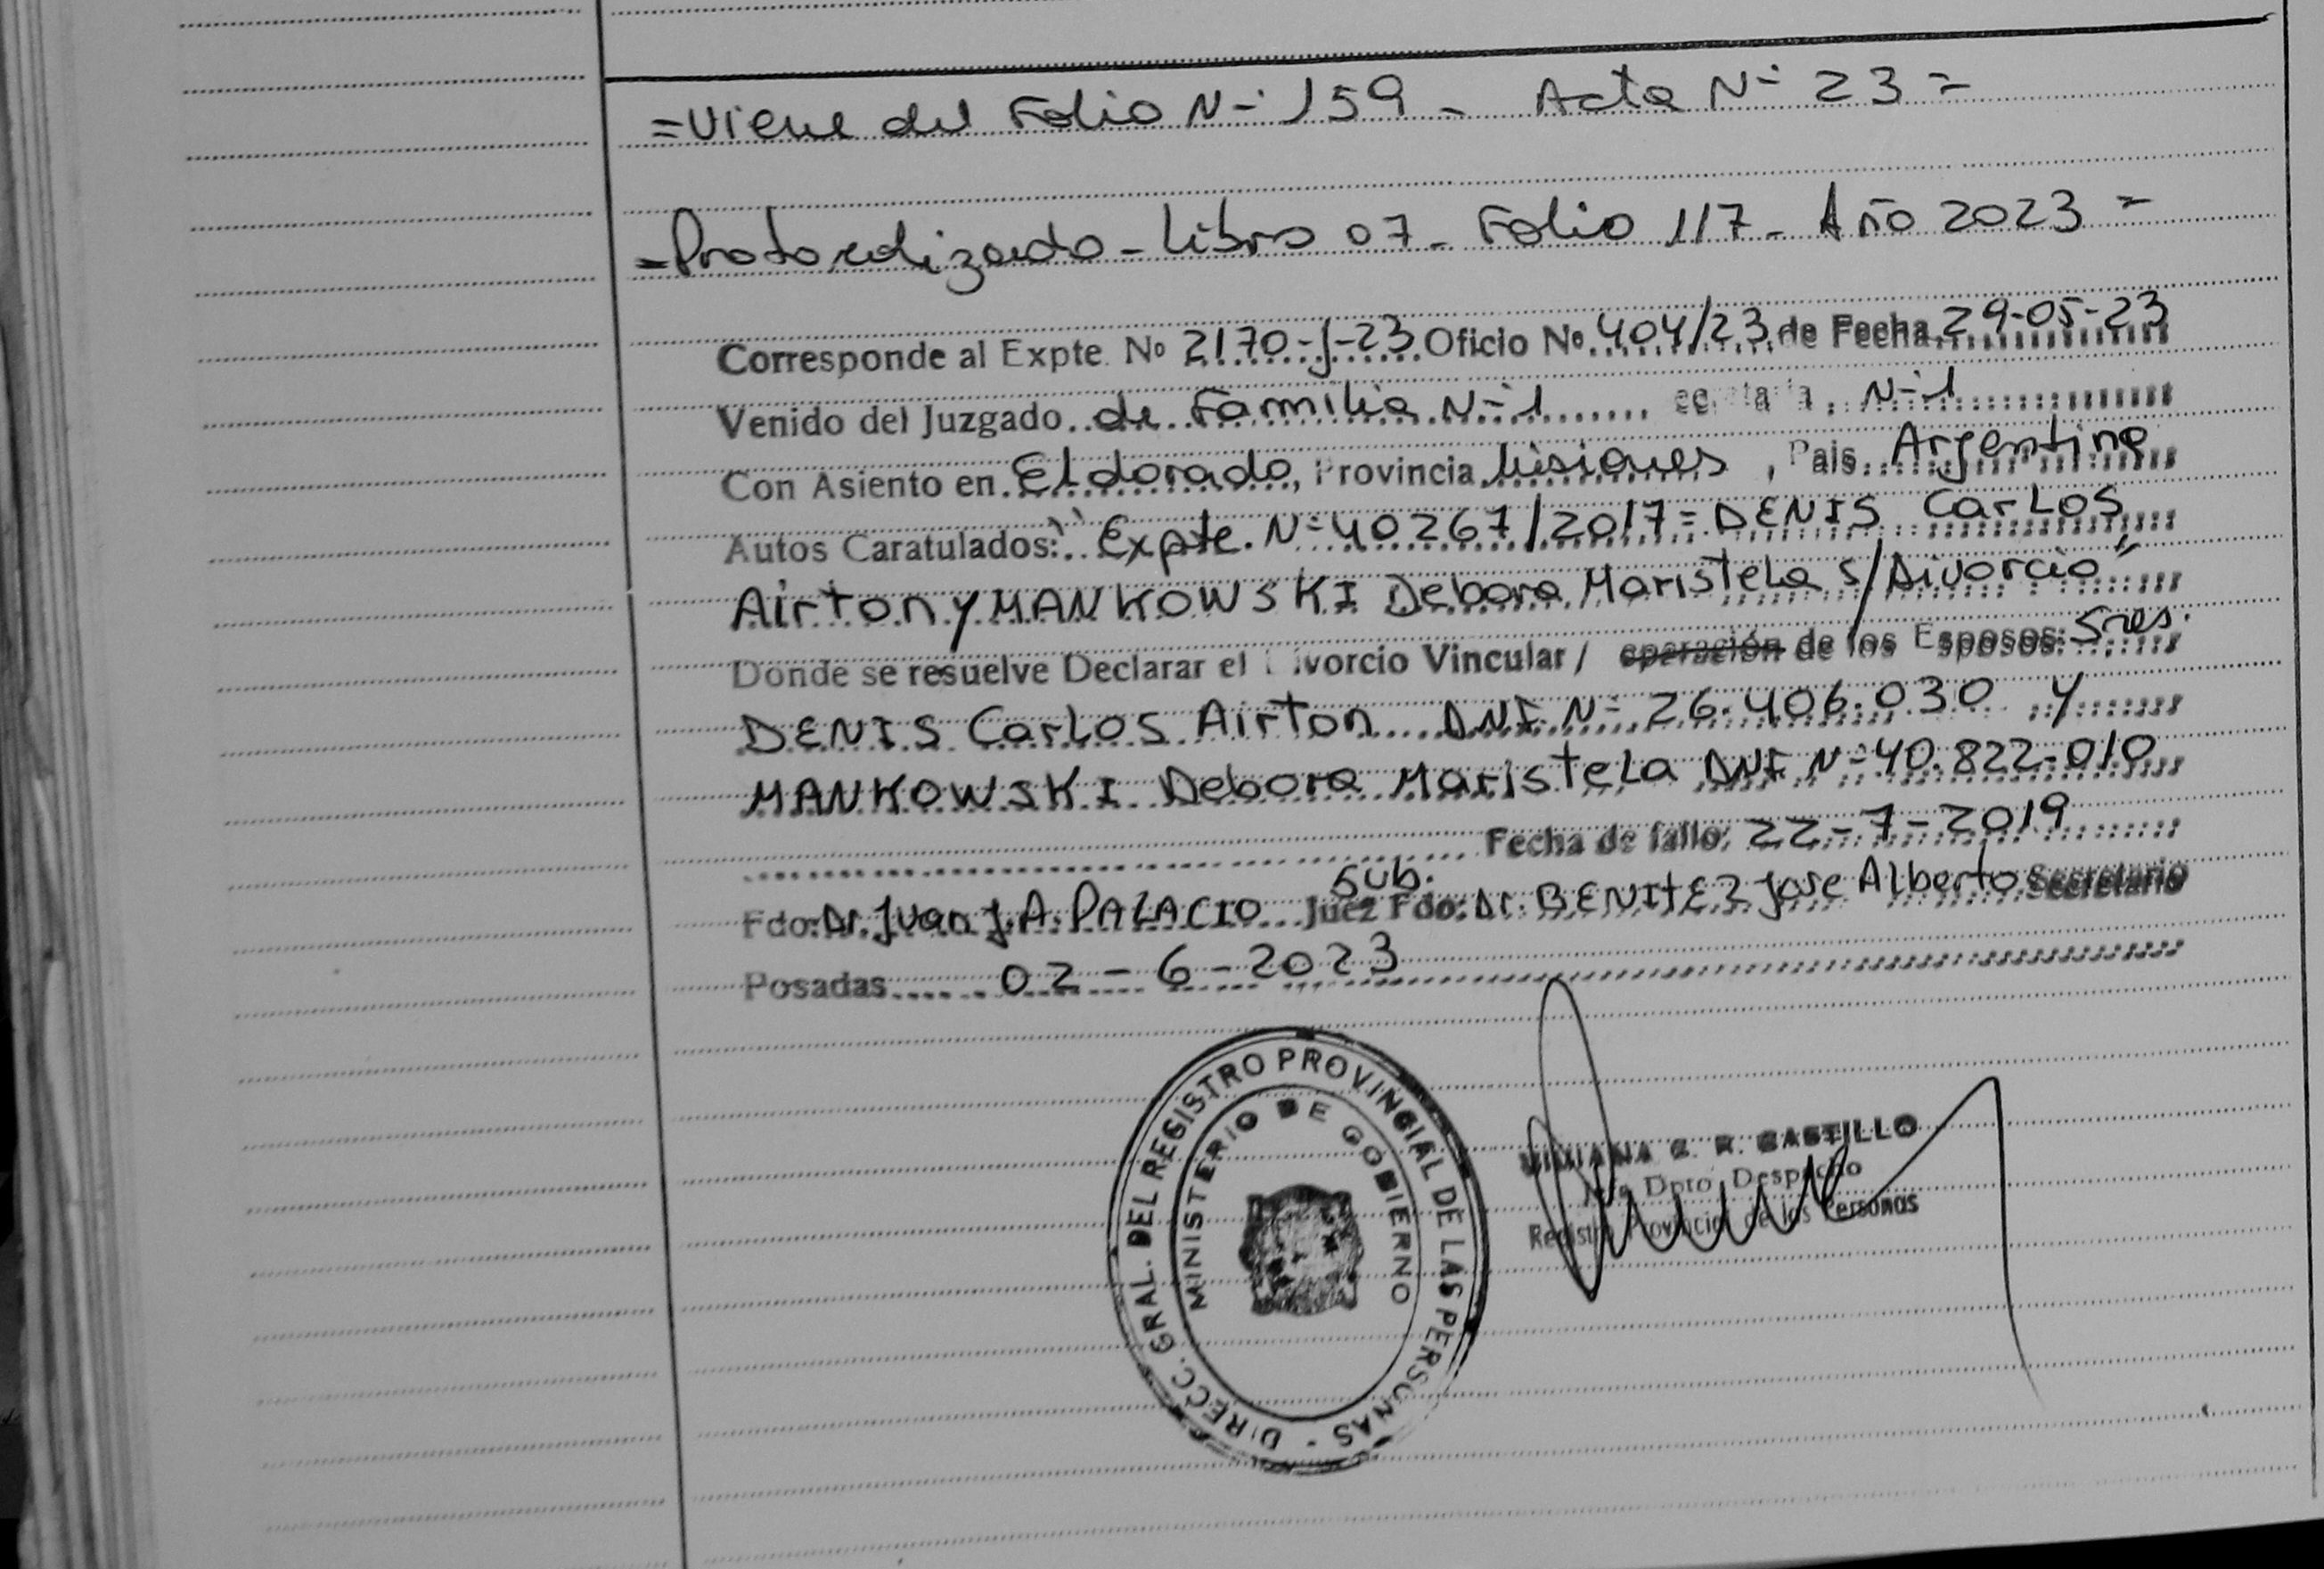 =Viene del Folio N- 159 - Acta N- 23 =
=Protocolizado - Libro 07 - Folio 117 - Año 2023 =
Corresponde al Expte. Nº 2170-J-23 Oficio Nº 404/23 de Fecha 29-05-23
Venido del Juzgado de Familia N-1 N-1
Con Asiento en Eldorado, Provincia Misiones, Pais Argentina
Autos Caratulados: "Expte. N-40267/2017= DENIS Carlos
Airton y MANKOWSKI Debora Maristela s/Divorcio"
Donde se resuelve Declarar el Divorcio Vincular / eparación de los Esposos: Sres.
DENIS Carlos Airton DNI N- 26.406.030 y
MANKOWSKI Debora Maristela DNI N-40.822.010
Fecha de fallo: 22-7-2019
Fdo: Dr. Juan J.A. PALACIO Juez Fdo: Dr. BENITEZ Jose Alberto Sub. Secretario
Posadas 02-6-2023
DIRECC. GRAL. DEL REGISTRO PROVINCIAL DE LAS PERSONAS -
MINISTERIO DE GOBIERNO
VIVIANA G. R. CASTILLO
Jefe Dpto. Despacho
Registro Provincial de las Personas